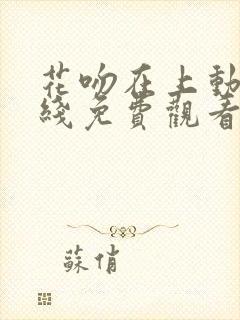 花吻在上動
綫免費觀看
蘇俏